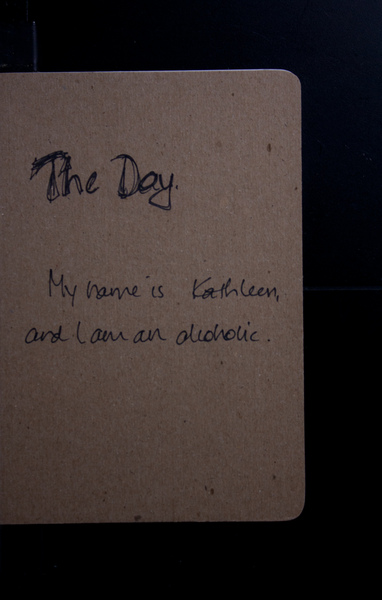 The Day.
My name is Kathleen,
and I am an alcoholic.